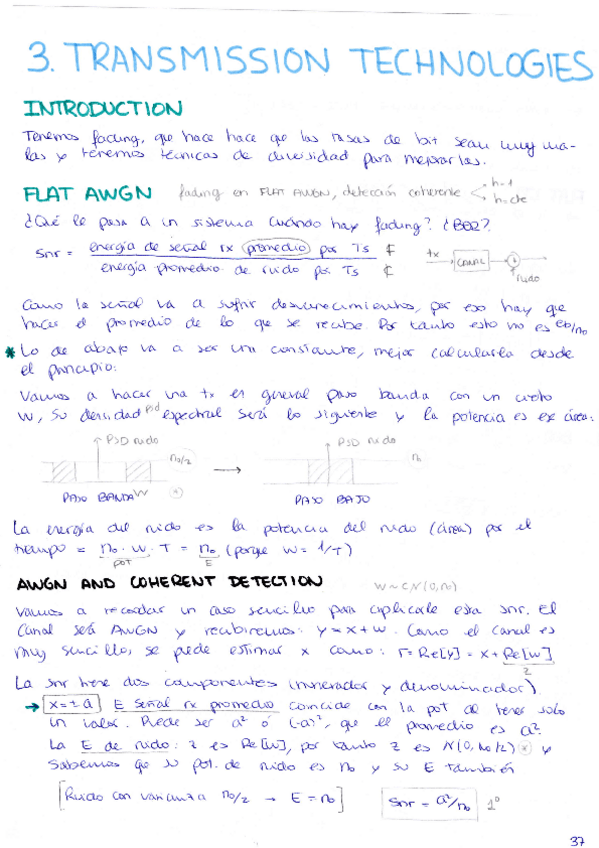 3. TRANSMISSION TECHNOLOGIES
INTRODUCTION
Tenemos fading, que hace hace que las tasas de bit sean muy ma-
las y tenemos técnicas de diversidad para mejorarlas.
FLAT AWGN fading en FLAT AWGN, detección coherente h=1
h=cte
¿Qué le pasa a un sistema cuándo hay fading? ¿BER?
Snr = energía de señal rx promedio por Ts
energía promedio de ruido por Ts
tx CANAL
ruido
Como la señal va a sufrir desvanecimientos, por eso hay que
hacer el promedio de lo que se recibe. Por tanto esto no es Eb/n0
* Lo de abajo va a ser una constante, mejor calcularla desde
el principio:
Vamos a hacer una tx en general paso banda con un cierto
W, su densidad psd espectral será lo siguiente y la potencia es ese área:
PSD ruido PSD ruido
n0/2 → n0
PASO BANDA W PASO BAJO
La energía del ruido es la potencia del ruido (área) por el
tiempo = n0 · W · T = n0 (porque W = 1/T)
pot E
AWGN AND COHERENT DETECTION W~CN(0,n0)
Vamos a recordar un caso sencillo para aplicarle esta snr. El
canal será AWGN y recibiremos: y = x + w. Como el canal es
muy sencillo, se puede estimar x como: r = Re[y] = x + Re[w]
z
La snr tiene dos componentes (numerador y denominador)
→ x = ± a E señal rx promedio coincide con la pot al tener solo
un valor. Puede ser a² ó (-a)², que el promedio es a².
La E de ruido: z es Re[w], por tanto z es N(0, N0/2) y
sabemos que su pot. de ruido es n0 y su E también
[Ruido con varianza n0/2 → E = n0] Snr = a²/n0 1º
37